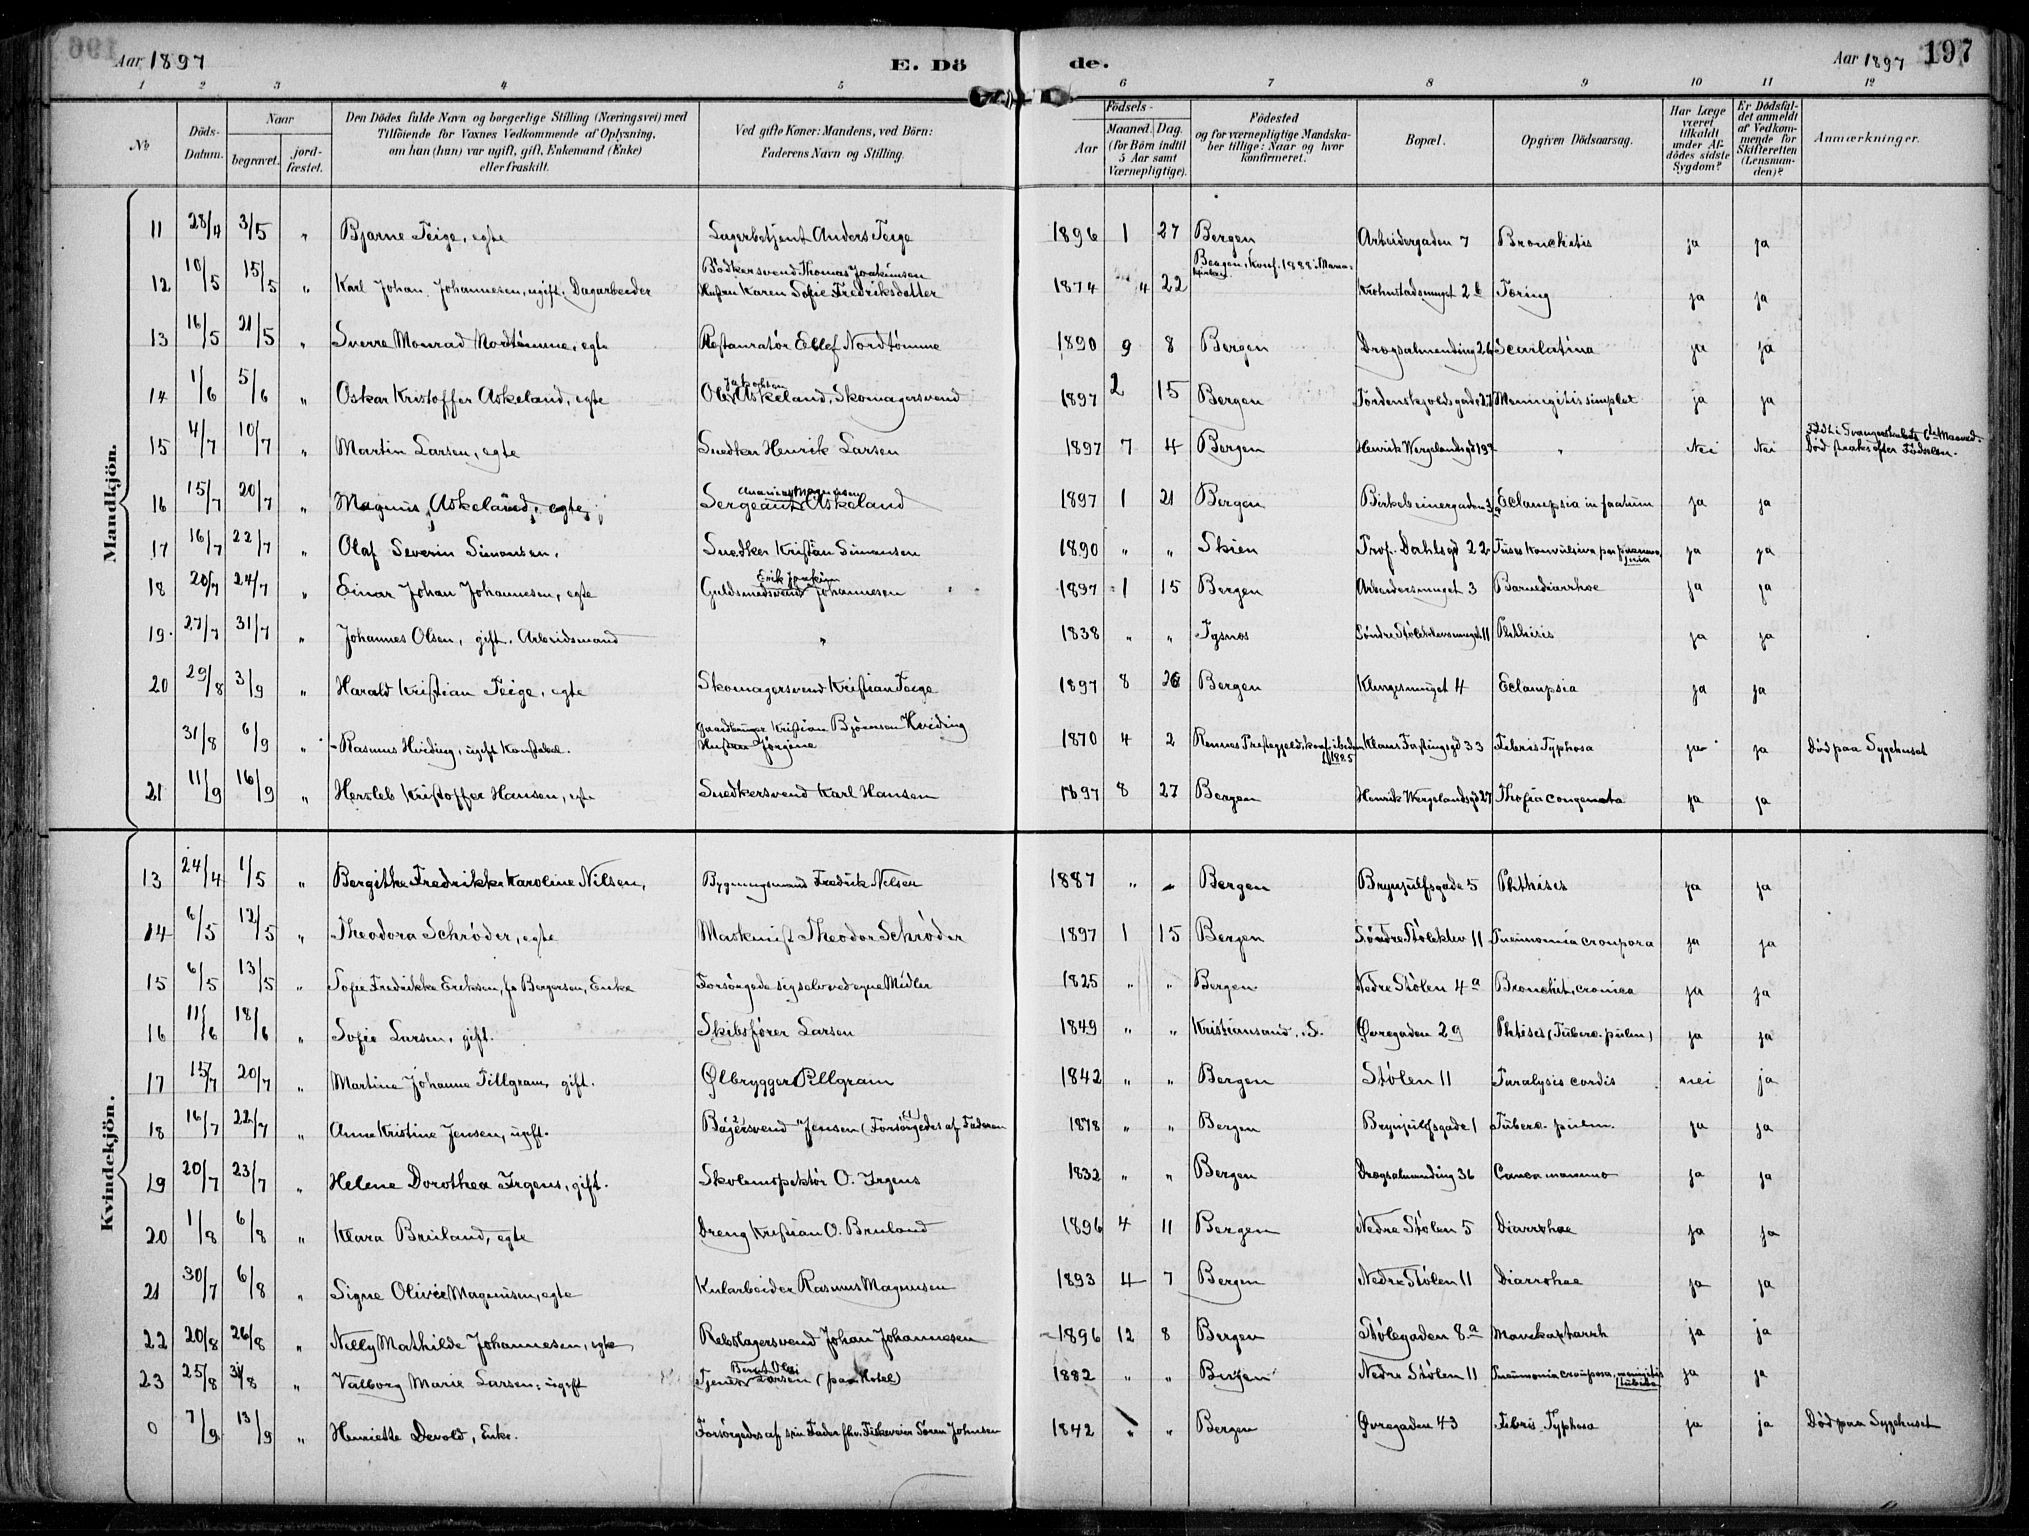 196
Aar 1897
E. Dö
de.
Aar 1897
197
1 2 3 4 5 6 7 8 9 10 11 12
No
Döds-Datum.
Naar
begravet.
jord-fæstet.
Den Dödes fulde Navn og borgerlige Stilling (Næringsvei) med
Tilföiende for Voxnes Vedkommende af Oplysning,
om han (hun) var ugift, gift, Enkemand (Enke)
eller fraskilt.
Ved gifte Koner: Mandens, ved Börn:
Faderens Navn og Stilling.
Födsels-
Aar
Maaned. Dag.
(for Börn indtil
5 Aar samt
Værnepligtige).
Födested
og for værnepligtige Mandska-
ber tillige: Naar og hvor
konfirmeret.
Bopæl.
Opgiven Dödsaarsag.
Har Læge
været
tilkaldt
under Af-
dödes sidste
Sygdom?
Er Dödsfal-
det anmeldt
af Vedkom-
mende for
Skifteretten
(Lensman-
den)?
Anmærkninger.
Mandkjön.
11 28/4 3/5 " Bjarne Teige, egte Lagerbetjent Anders Teige 1896 1 27 Bergen Arbeidergaden 7 Bronchitis ja ja
12 10/5 15/5 " Karl Johan Johannesen, ugift, Dagarbeider Bødkersvend Thomas Joakimsen
Hustru Karen Sofie Fredriksdatter 1874 4 22 Bergen, konf. 1888 Maria-
kirken Krohnstadsmuget 2b Toring ja ja
13 16/5 21/5 " Sverre Monrad Nordtømme, egte Restauratør Ellef Nordtømme 1890 9 8 Bergen Dregsalmending 26 Scarlatina ja ja
14 1/6 5/6 " Oskar Kristoffer Askeland, egte Ole Jakobsen Askeland, Skomagersvend 1897 2 15 Bergen Tordenskjoldsgade 27 Meningitis simplex ja ja
15 4/7 10/7 " Martin Larsen, egte Snedker Henrik Larsen 1897 7 4 Bergen Henrik Wergelandsgd 19 " Nei Nei Født i Svangerskabets 6te Maaned.
Død straks efter Fødselen.
16 15/7 20/7 " Magnus Askeland, egte Sergeant Ananias Magnusen Askeland 1897 1 21 Bergen Birkebeinergaden 3 Eclampsia infantum ja ja
17 16/7 22/7 " Olaf Severin Simonsen, Snedker Kristian Simonsen 1890 " " Skien Prof. Dahlsgd 22 Tusis Konvulsiva ja ja
18 20/7 24/7 " Einar Johan Johannesen, egte Guldsmedsvend Erik Joakim Johannesen 1897 1 15 Bergen Arbeidersmuget 3 Barnediarrhoe ja ja
19 27/7 31/7 " Johannes Olsen, gift, Arbeidsmand " 1838 " " Tysnes Søndre Stølekleivsmuget 11 Phthisis ja ja
20 29/8 3/9 " Harald Kristian Teige, egte Skomagersvend Kristian Teige 1897 8 26 Bergen Klingesmuget 4 Eclampsia ja ja
31/8 6/9 " Rasmus Hviding, ugift Konstabel. Gaardbruger Kristian Bjørnsen Hviding
Hustru Jørgine 1870 4 2 Rennes Prestegjeld, konf. ibidem
1885 Klaus Fastingsgd 33 Febris Typhosa ja ja Død paa Sygehuset
21 11/9 16/9 " Hersleb Kristoffer Hansen, egte Snedkersvend Karl Hansen 1897 8 27 Bergen Henrik Wergelandsgd 27 congenita ja ja
Kvindekjön.
13 24/4 1/5 " Bergithe Fredrikke Karoline Nilsen, Bygningsmand Fredrik Nilsen 1887 " " Bergen Brynjulfsgade 5 Phthisis ja ja
14 6/5 12/5 " Theodora Schrøder, egte Maskinist Theodor Schrøder 1897 1 15 Bergen Søndre Stølekleiv 11 Pneumonia crouposa ja ja
15 6/5 13/5 " Sofie Fredrikke Eriksen, f. Bergersen, Enke Forsørgede sig selv ved egne Midler 1825 " " Bergen Nedre Stølen 4a Bronchit. cronica ja ja
16 11/6 18/6 " Sofie Larsen, gift. Skibsfører Larsen 1849 " " Kristiansand. S. Øvregaden 29 Phtises (Tuberc. pulm) ja ja
17 15/7 20/7 " Martine Johanne Pillgram, gift. Ølbrygger Pillgram 1842 " " Bergen Stølen 11 Paralysis cordis nei ja
18 16/7 22/7 " Anne Kristine Jensen, ugift. Bøjersvend Jensen (Forsørgedes af Faderen 1878 " " Bergen Brynjulfsgade 1 Tuberc. pulm. ja ja
19 20/7 23/7 " Helene Dorothea Irgens, gift. Skoleinspektør O. Irgens 1832 " " Bergen Dregsalmending 36 Cancer mamma ja ja
20 1/8 6/8 " Klara Bruland, egte Dreng Kristian O. Bruland 1896 4 11 Bergen Nedre Stølen 5 Diarrohae ja ja
21 30/7 6/8 " Signe Olivie Magnusen, egte Kularbeider Rasmus Magnusen 1893 4 7 Bergen Nedre Stølen 11 Diarrohae ja ja
22 20/8 26/8 " Nelly Mathilde Johannesen, egte Rebslagersvend Johan Johannesen 1896 12 8 Bergen Stølegaden 8a Mavekatarrh ja ja
23 25/8 31/8 " Valborg Marie Larsen, ugift Tjener Bernt Olai Larsen (paa Hotel) 1882 " " Bergen Nedre Stølen 11 Pneumonia crouposa, meningitis
ja ja
0 7/9 13/9 " Henriette Devold, Enke. Forsørgedes af sin Fader fhv. Fiskeveier Søren Johnsen 1842 " " Bergen Øvregaden 43 Febris Typhosa ja ja Død paa Sygehuset